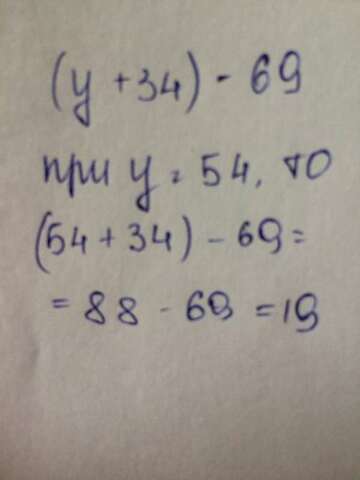 (y + 34) - 69
при y = 54, то
(54 + 34) - 69 =
= 88 - 69 = 19